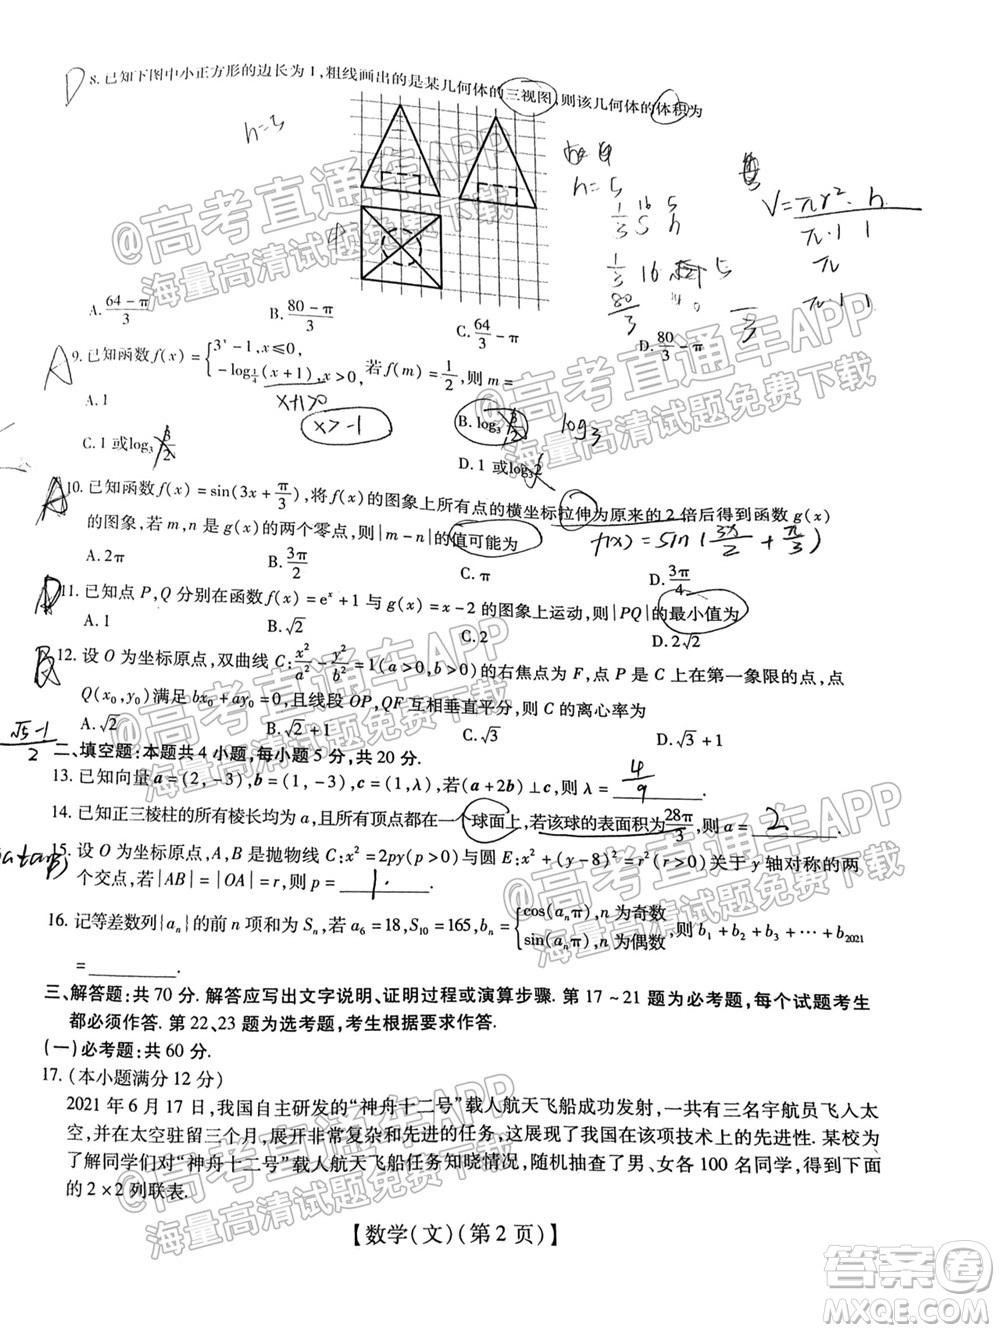 8. 已知下图中小正方形的边长为 1,粗线画出的是某几何体的三视图,则该几何体的体积为
h=5
A. (64-π)/3 B. (80-π)/3 C. 64/3-π D. 80/3-π
9. 已知函数 f(x)={3^x-1,x≤0, -log_{1/4}(x+1),x>0, 若 f(m)=1/2,则 m=
x+1>0
x>-1
A. 1 B. log₃ 3/2
C. 1 或 log₃ 3/2 D. 1 或 log₃ 2
10. 已知函数 f(x)=sin(3x+π/3),将 f(x)的图象上所有点的横坐标拉伸为原来的 2 倍后得到函数 g(x)
的图象,若 m,n 是 g(x)的两个零点,则|m-n|的值可能为
f(x)=sin(3x/2+π/3)
A. 2π B. 3π/2 C. π D. 3π/4
11. 已知点 P,Q 分别在函数 f(x)=e^x+1 与 g(x)=x-2 的图象上运动,则|PQ|的最小值为
A. 1 B. √2 C. 2 D. 2√2
12. 设 O 为坐标原点,双曲线 C: x²/a²-y²/b²=1(a>0,b>0)的右焦点为 F,点 P 是 C 上第一象限的点,点
Q(x₀,y₀)满足 bx₀+ay₀=0,且线段 OP,QF 互相垂直平分,则 C 的离心率为
A. √2 B. √2+1 C. √3 D. √3+1
二、填空题:本题共 4 小题,每小题 5 分,共 20 分.
13. 已知向量 a=(2,-3),b=(1,-3),c=(1,λ),若(a+2b)⊥c,则 λ= 4/9 .
14. 已知正三棱柱的所有棱长均为 a,且所有顶点都在一个球面上,若该球的表面积为 28π/3,则 a= 2 .
15. 设 O 为坐标原点,A,B 是抛物线 C:x²=2py(p>0)与圆 E:x²+(y-8)²=r²(r>0)关于 y 轴对称的两
个交点,若|AB|=|OA|=r,则 p= 1 .
16. 记等差数列{aₙ}的前 n 项和为 Sₙ,若 a₆=18,S₁₀=165,bₙ={cos(aₙπ),n 为奇数 sin(aₙπ),n 为偶数,则 b₁+b₂+b₃+…+b₂₀₂₁
=________.
三、解答题:共 70 分. 解答应写出文字说明、证明过程或演算步骤. 第 17~21 题为必考题,每个试题考生
都必须作答. 第 22、23 题为选考题,考生根据要求作答.
(一)必考题:共 60 分.
17. (本小题满分 12 分)
2021 年 6 月 17 日,我国自主研发的“神舟十二号”载人航天飞船成功发射,一共有三名宇航员飞入太
空,并在太空驻留三个月,展开非常复杂和先进的任务,这展现了我国在该项技术上的先进性. 某校为
了解同学们对“神舟十二号”载人航天飞船任务知晓情况,随机抽查了男、女各 100 名同学,得到如下
的 2×2 列联表.
【数学(文)(第 2 页)】
@高考直通车APP
海量高清试题免费下载
答案卷
MXQE.COM